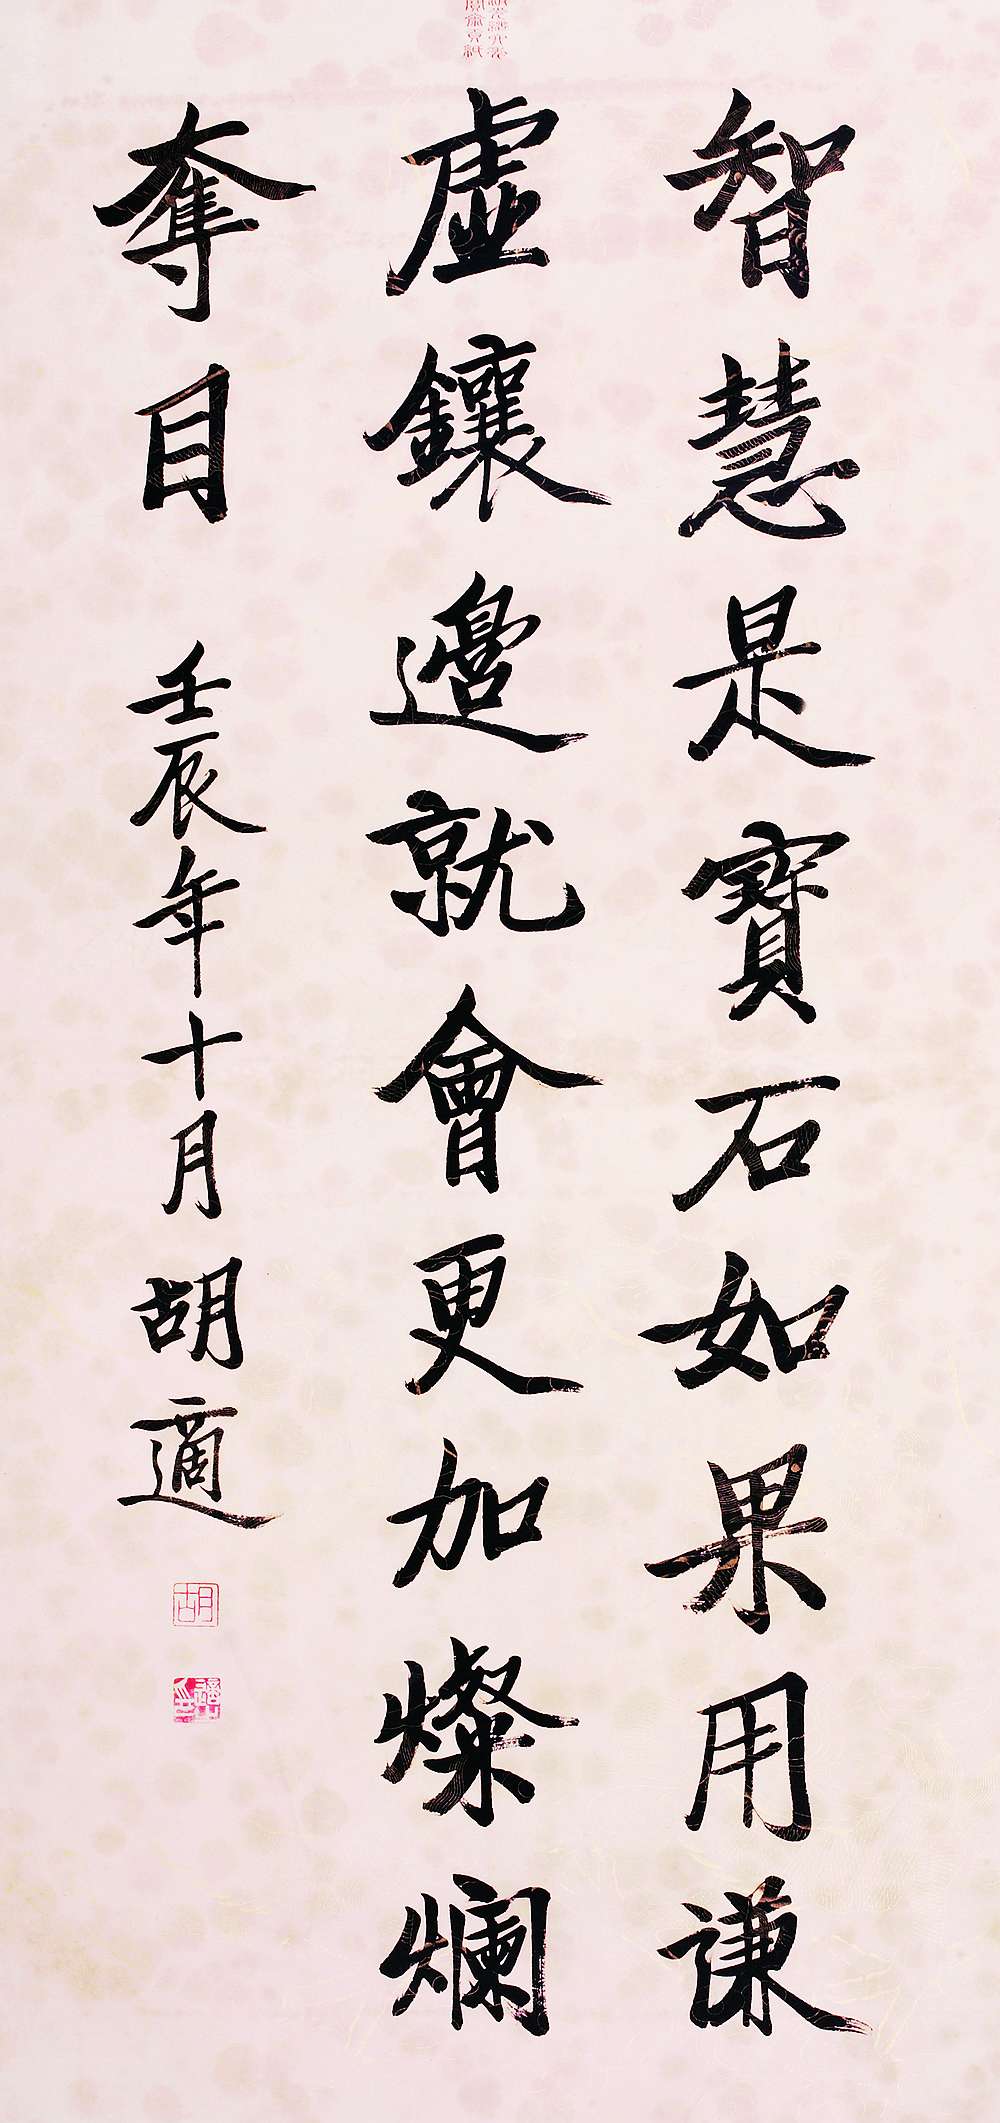 智慧是寶石如果用謙
虛鑲邊就會更加燦爛
奪目
壬辰年十月 胡適
胡